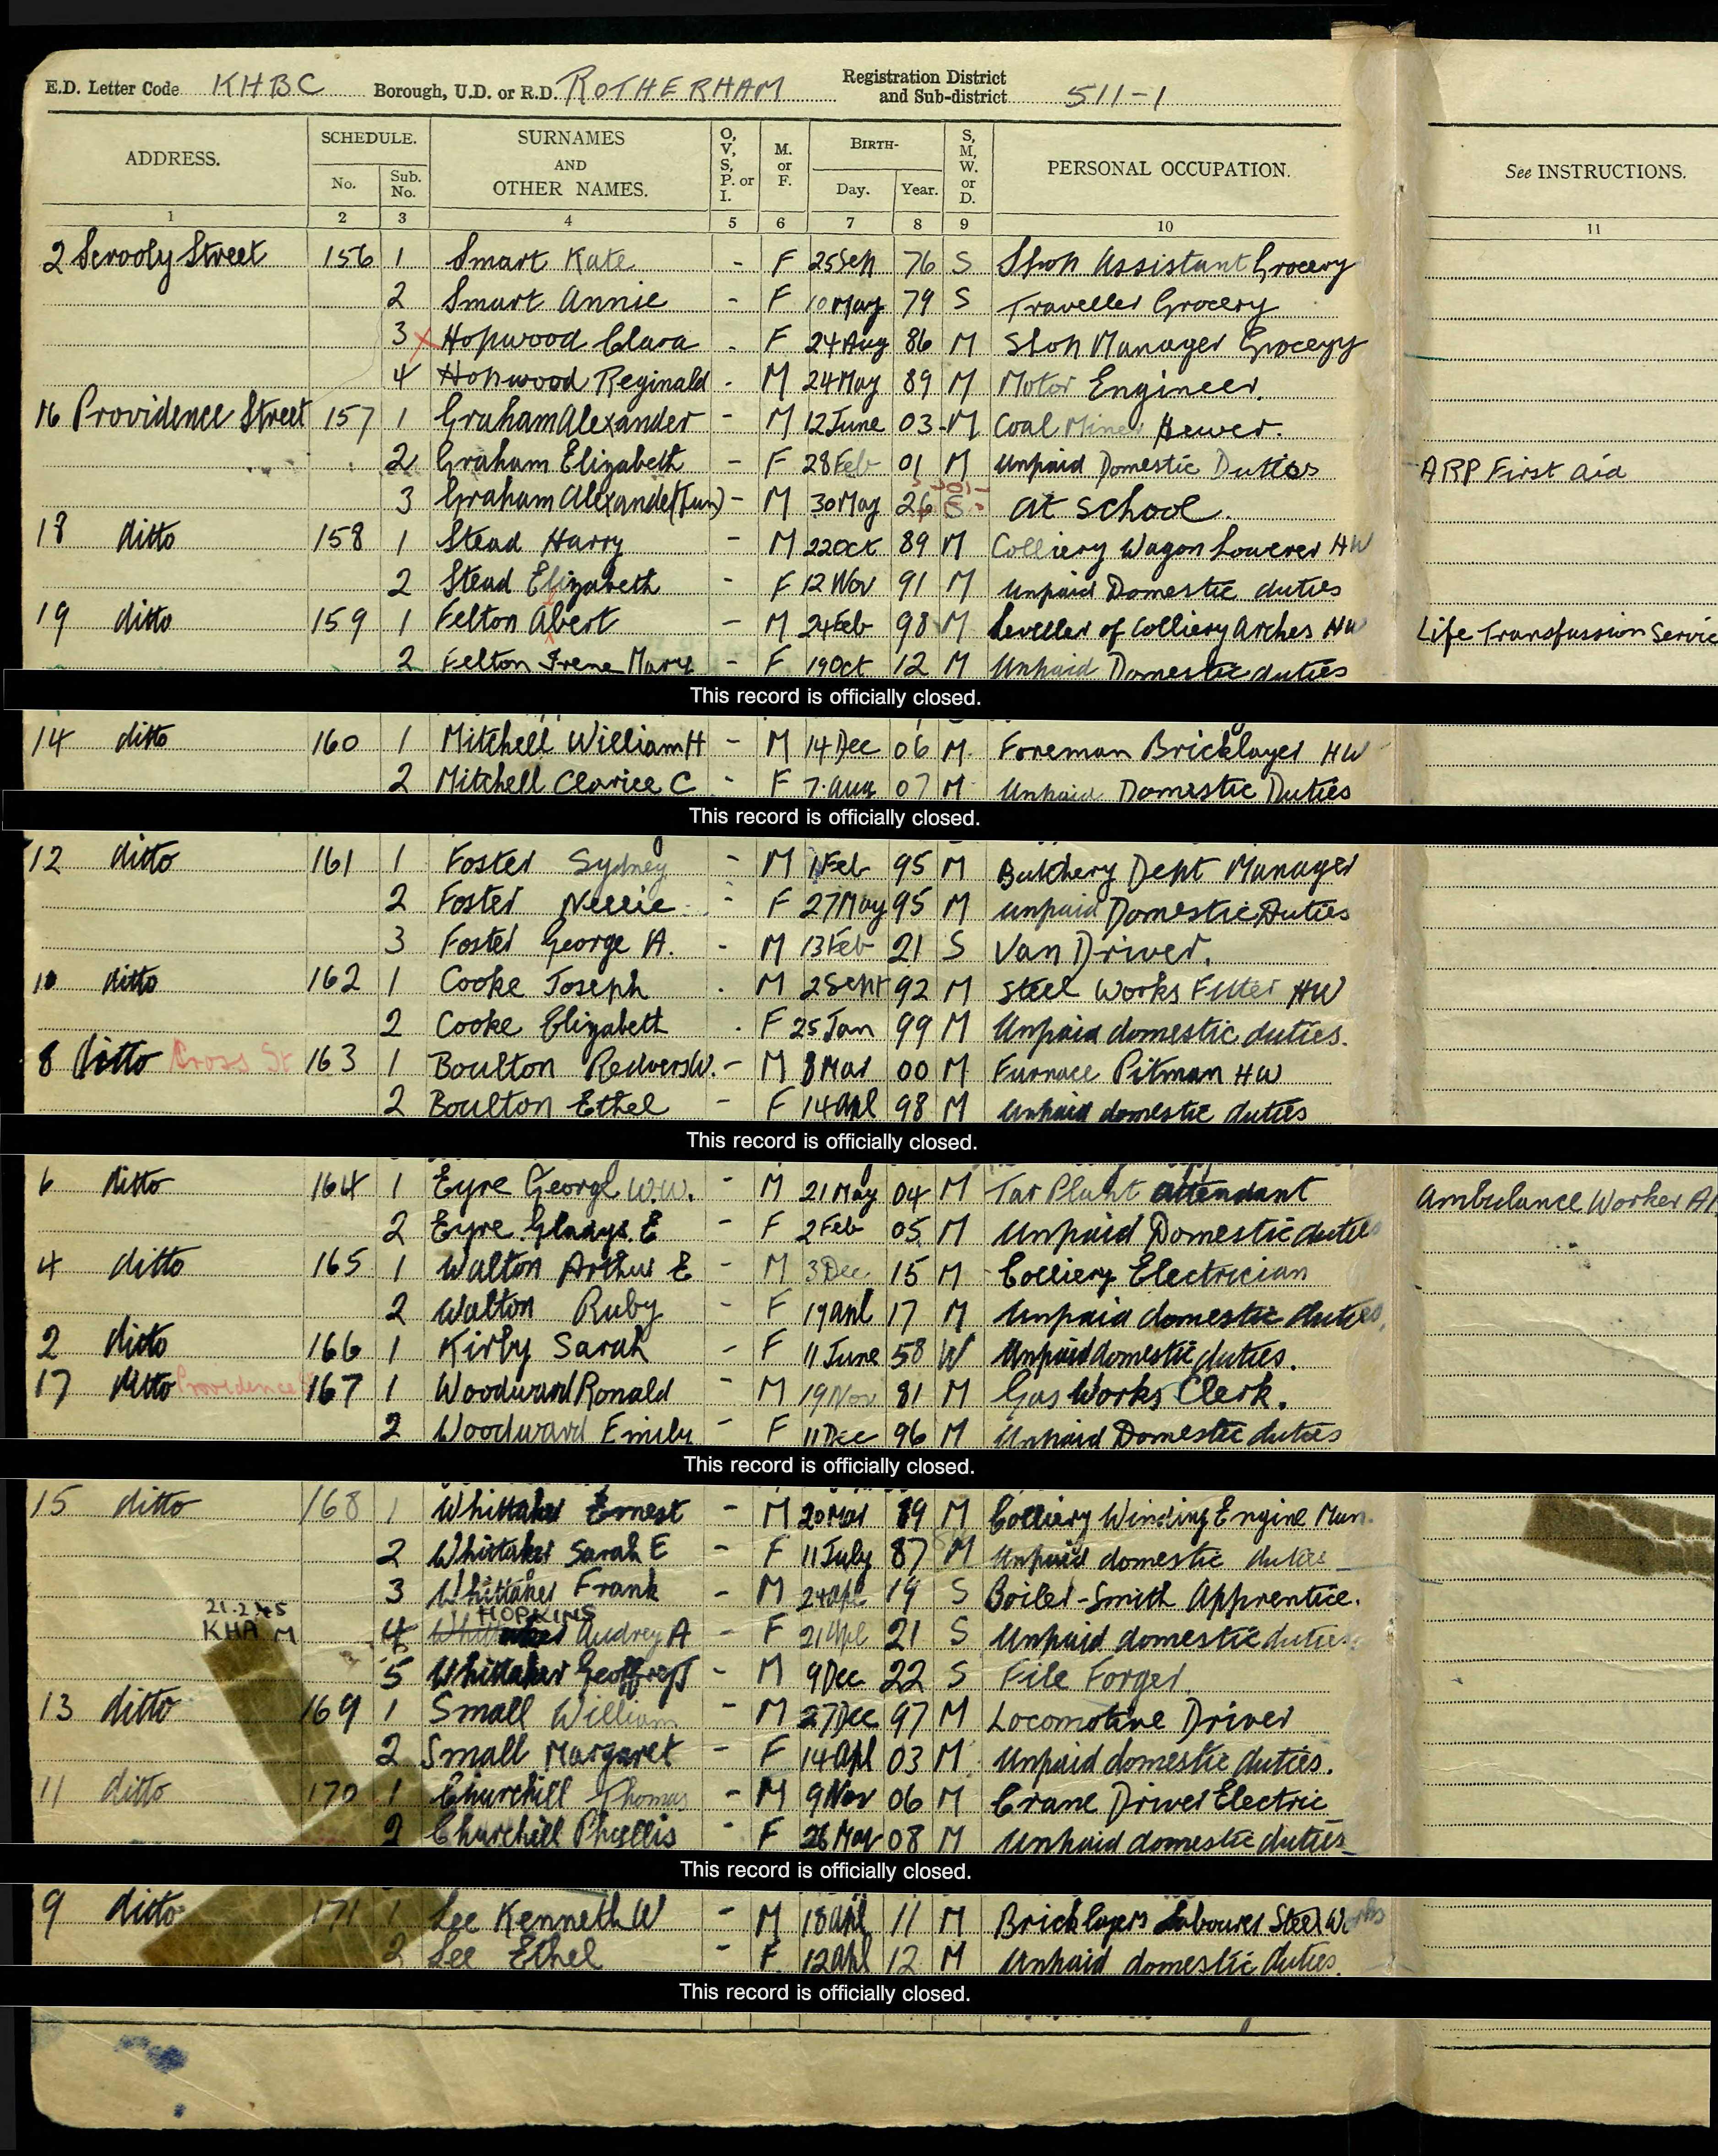 E.D. Letter Code KHBC Borough, U.D. or R.D. ROTHERHAM Registration District and Sub-district 511-1
ADDRESS. SCHEDULE. No. Sub. No. SURNAMES AND OTHER NAMES. O, V, S, P. or I. M. or F. BIRTH- Day. Year. S, M, W. or D. PERSONAL OCCUPATION. See INSTRUCTIONS.
1 2 3 4 5 6 7 8 9 10 11
2 Scrooly Street 156 1 Smart Kate - F 25 Sep 76 S Shop Assistant Grocery
2 Smart Annie - F 10 May 79 S Traveller Grocery
3 x Hopwood Clara - F 24 Aug 86 M Shop Manager Grocery
4 Hopwood Reginald - M 24 May 89 M Motor Engineer.
16 Providence Street 157 1 Graham Alexander - M 12 June 03 M Coal Miner Hewer.
2 Graham Elizabeth - F 28 Feb 01 M Unpaid Domestic Duties ARP First Aid
3 Graham Alexander (Jun) - M 30 May 26 S At School.
18 ditto 158 1 Stead Harry - M 22 Oct 89 M Colliery Wagon Lowerer HW
2 Stead Elizabeth - F 12 Nov 91 M Unpaid Domestic duties
19 ditto 159 1 Felton Abert - M 24 Feb 98 M Leveller of Colliery Arches HW Life Transfussion Servic
2 Felton Irene Mary - F 19 Oct 12 M Unpaid Domestic duties
This record is officially closed.
14 ditto 160 1 Mitchell William H - M 14 Dec 06 M Foreman Bricklayer HW
2 Mitchell Clarice C - F 7 Aug 07 M Unpaid Domestic Duties
This record is officially closed.
12 ditto 161 1 Foster Sydney - M 1 Feb 95 M Butchery Dept Manager
2 Foster Nellie - F 27 May 95 M Unpaid Domestic Duties
3 Foster George A. - M 13 Feb 21 S Van Driver.
10 ditto 162 1 Cooke Joseph . M 2 Sept 92 M Steel Works Fitter HW
2 Cooke Elizabeth . F 25 Jan 99 M Unpaid domestic duties.
8 ditto Cross St 163 1 Boulton Redvers W. - M 8 Mar 00 M Furnace Pitman HW
2 Boulton Ethel - F 14 Apl 98 M Unpaid domestic duties
This record is officially closed.
6 ditto 164 1 Eyre George W.W. - M 21 May 04 M Tar Plant attendant Ambulance Worker
2 Eyre Gladys E - F 2 Feb 05 M Unpaid Domestic duties
4 ditto 165 1 Walton Arthur E - M 3 Dec 15 M Colliery Electrician
2 Walton Ruby - F 19 Apl 17 M Unpaid domestic duties,
2 ditto 166 1 Kirby Sarah - F 11 June 58 W Unpaid domestic duties.
17 ditto Providence 167 1 Woodward Ronald - M 19 Nov 81 M Gas Works Clerk.
2 Woodward Emily - F 11 Dec 96 M Unpaid Domestic duties
This record is officially closed.
15 ditto 168 1 Whittaker Ernest - M 20 Mar 89 M Colliery Winding Engine Man.
2 Whittaker Sarah E - F 11 July 87 M Unpaid domestic duties
3 Whittaker Frank - M 24 Apl 19 S Boiler-Smith Apprentice.
21.2.45 HOPKINS
KHA M 4 Whittaker Audrey A - F 21 Apl 21 S Unpaid domestic duties
5 Whittaker Geoffrey J - M 9 Dec 22 S File Forger.
13 ditto 169 1 Small William - M 27 Dec 97 M Locomotive Driver
2 Small Margaret - F 14 Apl 03 M Unpaid domestic duties.
11 ditto 170 1 Churchill Thomas - M 9 Nov 06 M Crane Driver Electric
2 Churchill Phyllis - F 26 Mar 08 M Unpaid domestic duties
This record is officially closed.
9 ditto 171 1 Lee Kenneth W - M 18 Apl 11 M Bricklayers Labourer Steel Works
2 Lee Ethel - F 12 Apl 12 M Unpaid domestic duties.
This record is officially closed.